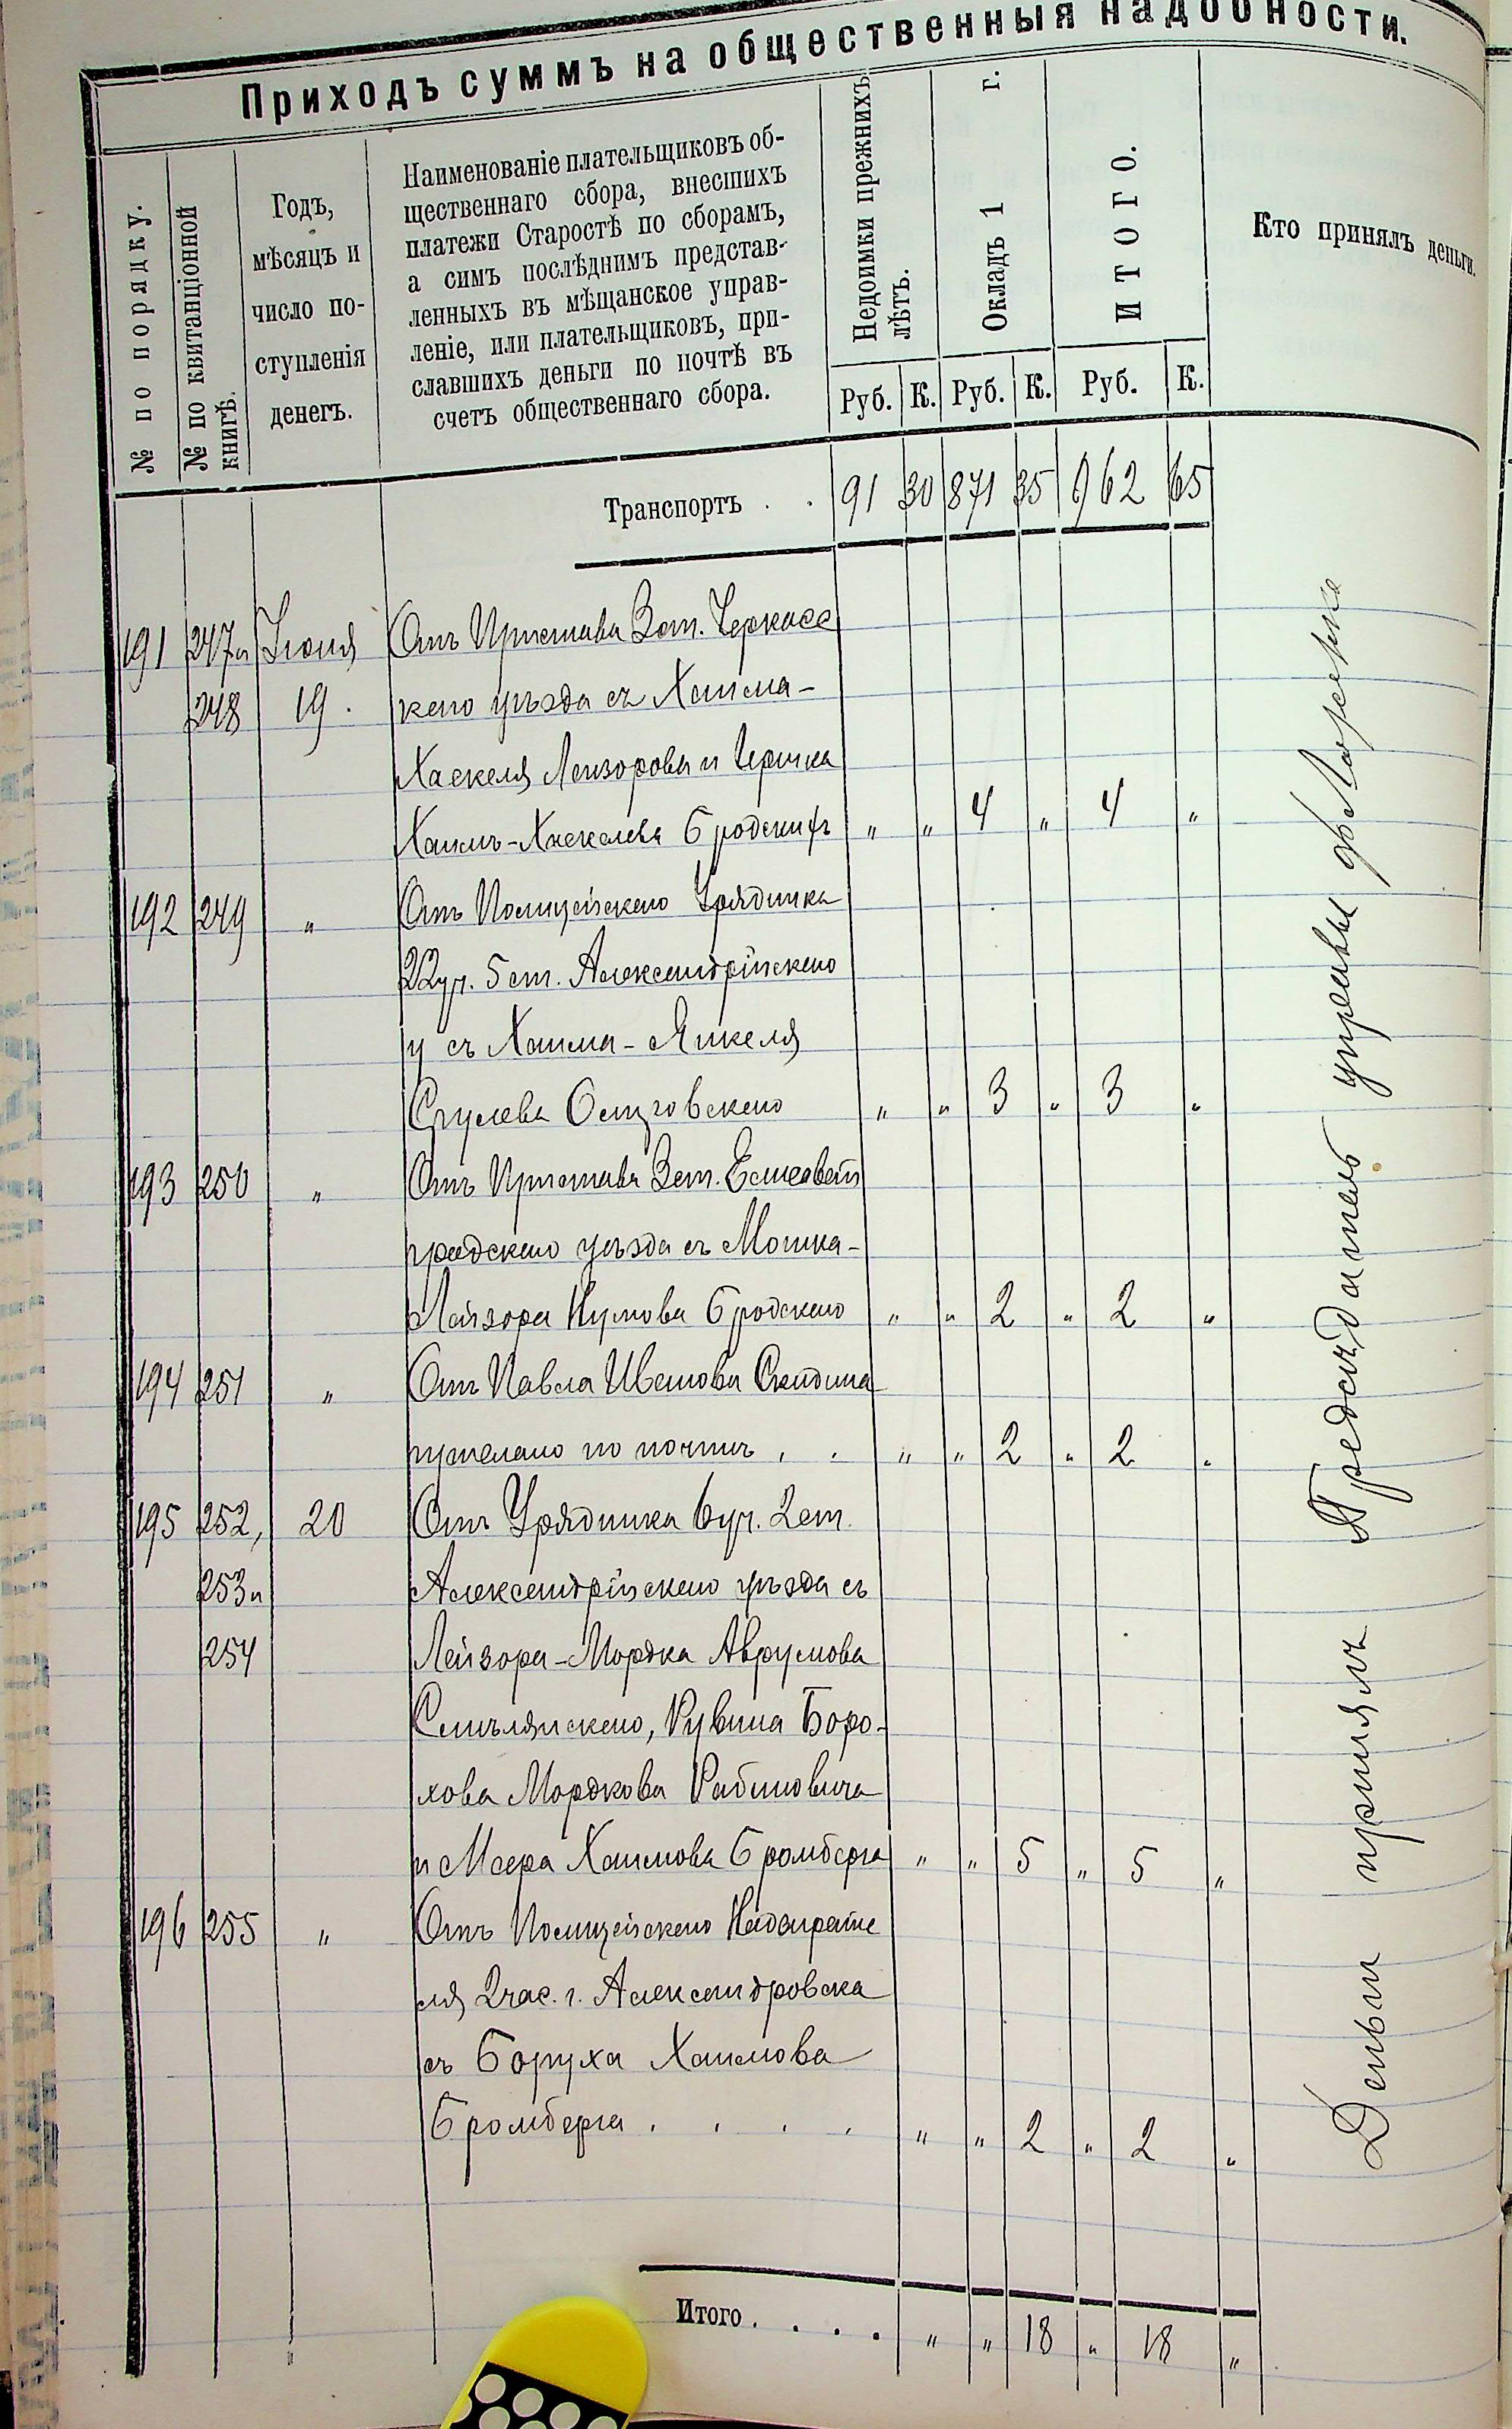 Приходъ суммъ на общественныя надобности.
№ по порядку.
№ по квитанціонной книгѣ.
Годъ,
мѣсяцъ и
число по-
ступленія
денегъ.
Наименованіе плательщиковъ об-
щественнаго сбора, внесшихъ
платежи Старостѣ по сборамъ,
а симъ послѣднимъ представ-
ленныхъ въ мѣщанское управ-
леніе, или плательщиковъ, при-
славшихъ деньги по почтѣ въ
счетъ общественнаго сбора.
Недоимки прежнихъ лѣтъ.
Окладъ 1 г.
ИТОГО.
Кто принялъ деньги.
Руб. К. Руб. К. Руб. К.
Транспортъ . . 91 30 871 35 962 65
191 247 и Іюня Отъ Пристава 3 ст. Черкасс
248 19. каго уѣзда съ Хаима-
Хаскеля Лейзорова и Гершка
Хаимъ-Хаскелева Бродскихъ " " 4 " 4 "
192 249 " Отъ Полицейскаго Урядника
22 уч. 5 ст. Александрійскаго
у съ Хаима-Янкеля
Срулева " " 3 " 3 "
193 250 " Отъ Пристава 3 ст. Елисавет
градскаго уѣзда съ Мошка-
Лейзора Нумова Бродскаго " " 2 " 2 "
194 251 " Отъ Павла Иванова
по почтѣ . . " " 2 " 2 "
195 252, 20 Отъ Урядника 6 уч. 2 ст.
253 и Александрійскаго уѣзда съ
254 Лейзора-Мордка Аврумова
Смѣлянскаго, Рувина Боро-
хова Мордкова Рабиновича
и Меера Хаимова Бромберга " " 5 " 5 "
196 255 " Отъ Полицейскаго Надзирате
ля 2 час. г. Александровска
съ Боруха Хаимова
Бромберга . . . . " " 2 " 2 "
Итого . . . . " " 18 " 18 "
Деньги принялъ Предсѣдатель управы